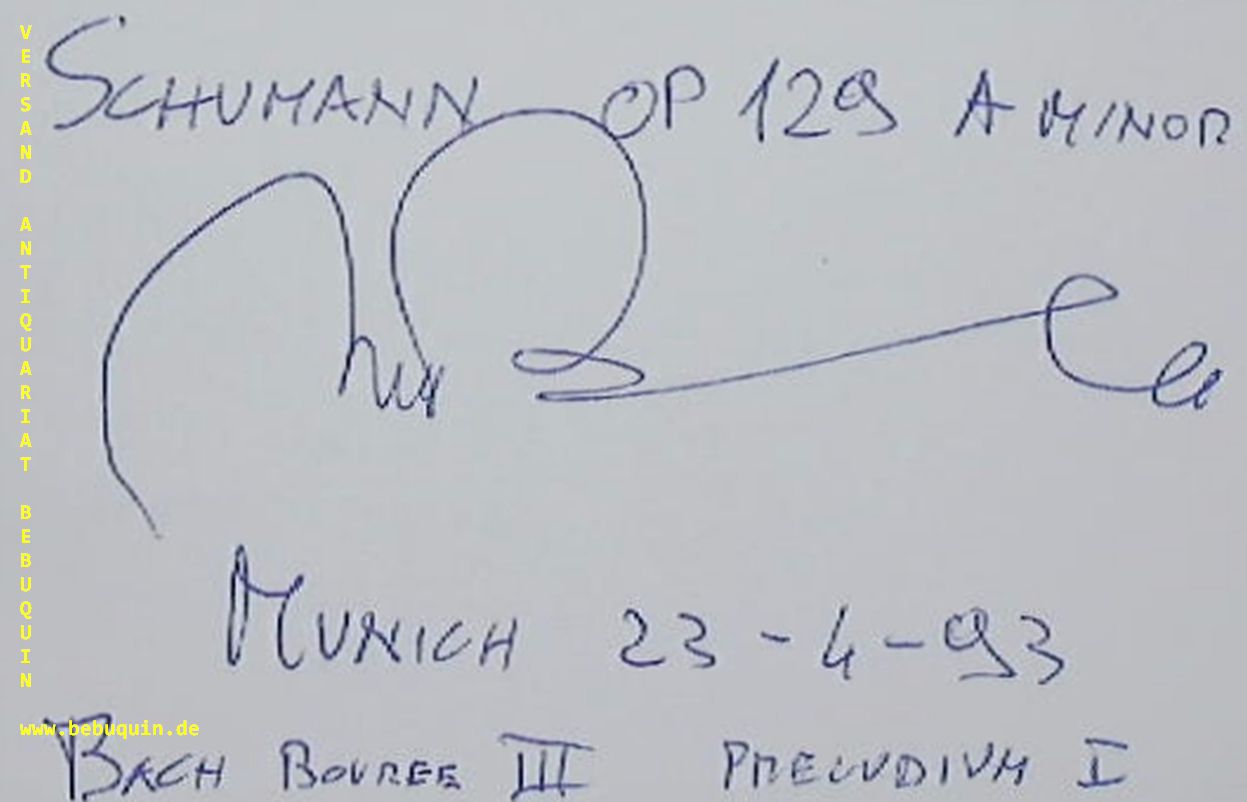 SCHUMANN OP 129 A MINOR
MUNICH 23-4-93
BACH BOUREE III PRELUDIUM I
VERSAND ANTIQUARIAT BEBUQUIN
www.bebuquin.de